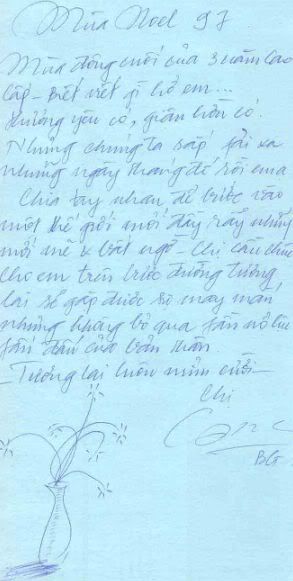 Mùa Noel 97
Mùa đông cuối của 3 năm cao
cấp - Biết viết gì hở em...
thương yêu có, giận hờn có.
Nhưng chúng ta sắp fải xa
những ngày tháng đó rồi em ạ
Chia tay nhau để bước vào
một thế giới mới đầy rẫy những
mới mẻ & bất ngờ - Chị cầu chúc
cho em trên bước đường tương
lai sẽ gặp được sự may mắn
nhưng không bỏ qua fần nỗ lực
fấn đấu của bản thân.
- Tương lai luôn mỉm cười -
Chị
BG